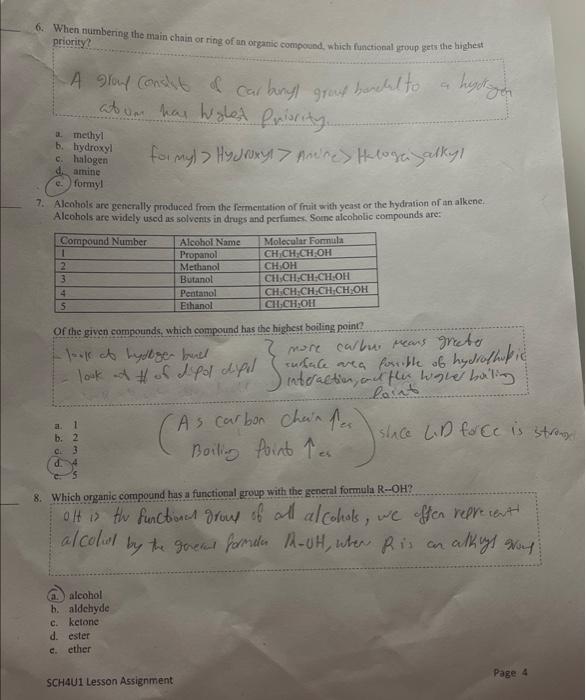 6. When numbering the main chain or ring of an organic compound, which functional group gets the highest
priority?
A group consist of carbonyl group bonded to a hydrogen
atom has highest Priority.
a. methyl
b. hydroxyl
c. halogen
d. amine
e. formyl
formyl > Hydroxyl > Amine > Halogen > alkyl
7. Alcohols are generally produced from the fermentation of fruit with yeast or the hydration of an alkene.
Alcohols are widely used as solvents in drugs and perfumes. Some alcoholic compounds are:
Compound Number Alcohol Name Molecular Formula
1 Propanol CH₃CH₂CH₂OH
2 Methanol CH₃OH
3 Butanol CH₃CH₂CH₂CH₂OH
4 Pentanol CH₃CH₂CH₂CH₂CH₂OH
5 Ethanol CH₃CH₂OH
Of the given compounds, which compound has the highest boiling point?
- look at hydrogen bond
- look at # of dipol dipol
more carbon means greater
surface area possible of hydrophobic
interaction, and thus higher boiling
Point
a. 1
b. 2
c. 3
d. 4
e. 5
As carbon chain ↑es
Boiling Point ↑es
since L.D force is stronger
8. Which organic compound has a functional group with the general formula R--OH?
OH is the functional group of all alcohols, we often represent
alcohol by the general formula R-OH, when R is an alkyl group
a. alcohol
b. aldehyde
c. ketone
d. ester
e. ether
SCH4U1 Lesson Assignment
Page 4